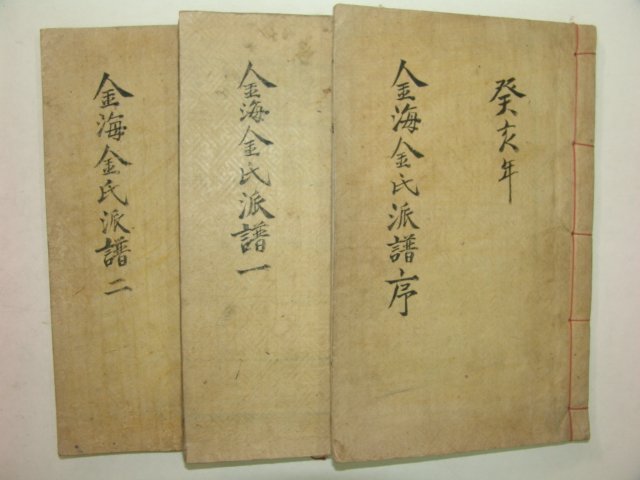 癸亥年
金海金氏派譜序
金海金氏派譜一
金海金氏派譜二